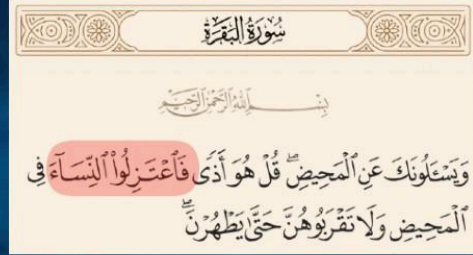 سُورَةُ البَقَرَةِ
بِسْمِ اللَّهِ الرَّحْمَٰنِ الرَّحِيمِ
وَيَسْـَٔلُونَكَ عَنِ ٱلْمَحِيضِۖ قُلْ هُوَ أَذًى فَٱعْتَزِلُوا۟ ٱلنِّسَآءَ فِى
ٱلْمَحِيضِ وَلَا تَقْرَبُوهُنَّ حَتَّىٰ يَطْهُرْنَۖ